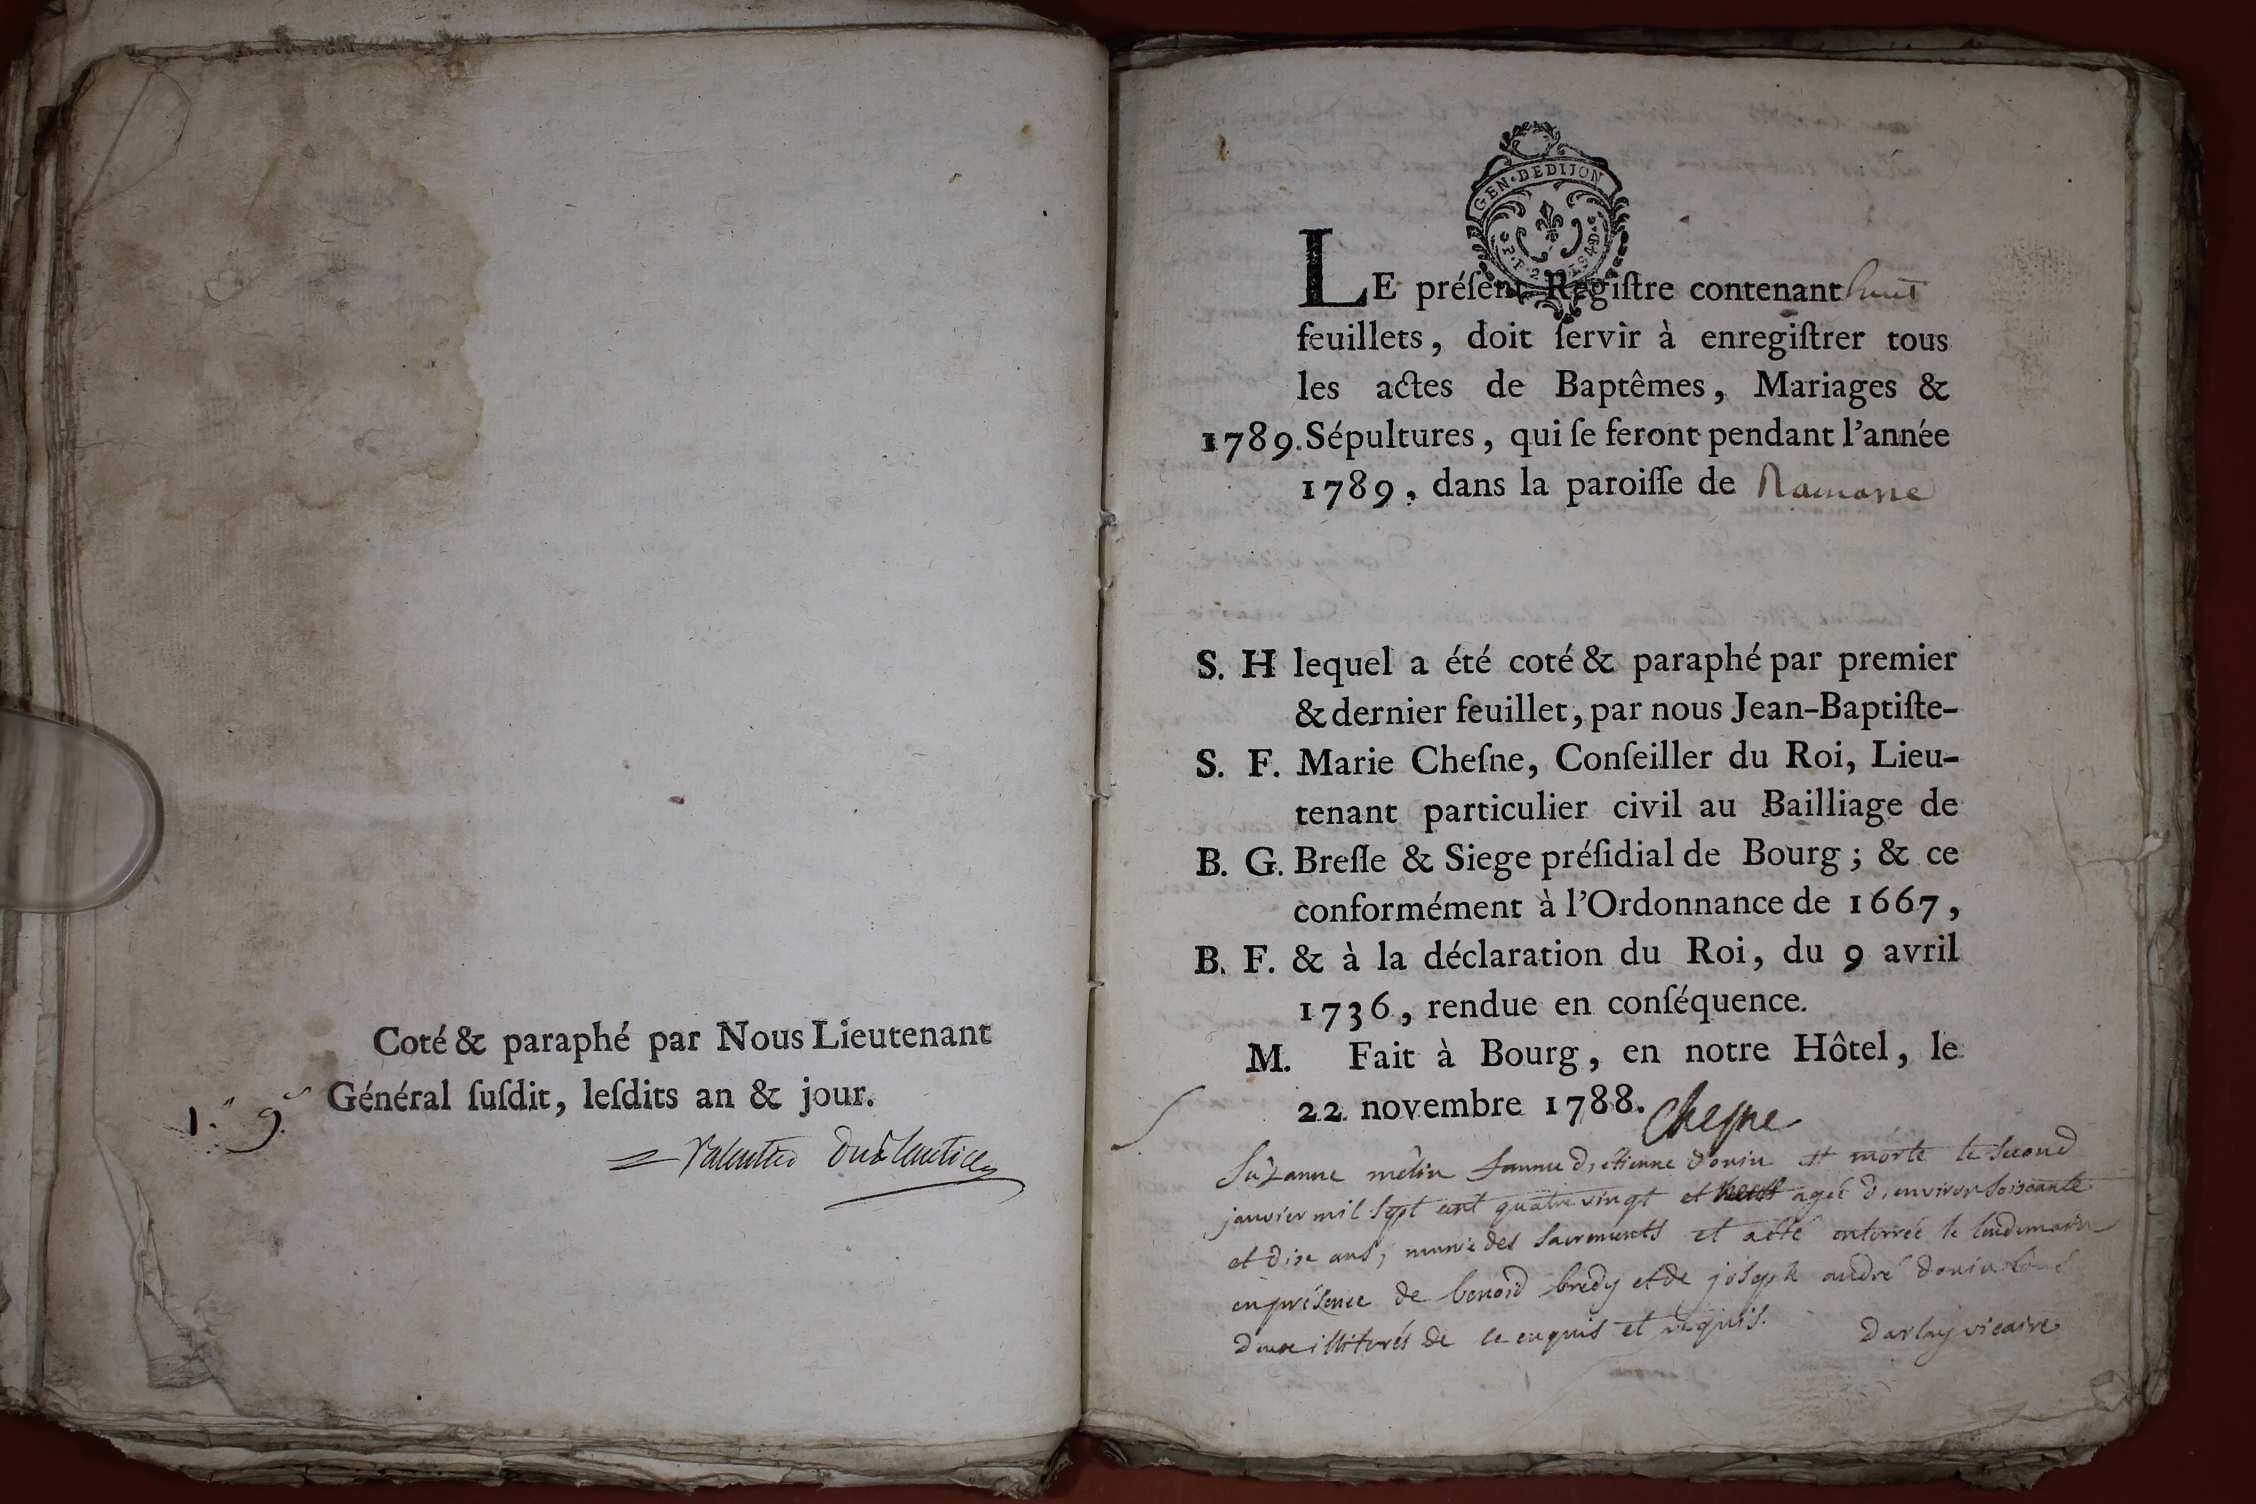 Coté & paraphé par Nous Lieutenant
Général ſuſdit, leſdits an & jour.
GEN·DEDIJON
LE préſent Regiſtre contenant huit
feuillets, doit ſervir à enregiſtrer tous
les actes de Baptêmes, Mariages &
1789. Sépultures, qui ſe feront pendant l'année
1789, dans la paroiſſe de Ramasse
S. H lequel a été coté & paraphé par premier
& dernier feuillet, par nous Jean-Baptiſte-
S. F. Marie Cheſne, Conſeiller du Roi, Lieu-
tenant particulier civil au Bailliage de
B. G. Breſſe & Siege préſidial de Bourg; & ce
conformément à l'Ordonnance de 1667,
B. F. & à la déclaration du Roi, du 9 avril
1736, rendue en conſéquence.
M. Fait à Bourg, en notre Hôtel, le
22 novembre 1788. Chesne
Suzanne mélin famme d'etienne donin est morte le second
janvier mil sept cent quatre vingt et neuf agée d'environ soixante
et dix ans, munie des sacrements et a été enterrée le lendemain
en présence de benoid bredy et de joseph andré donin
deux illiterés de ce enquis et requis. Darlay vicaire